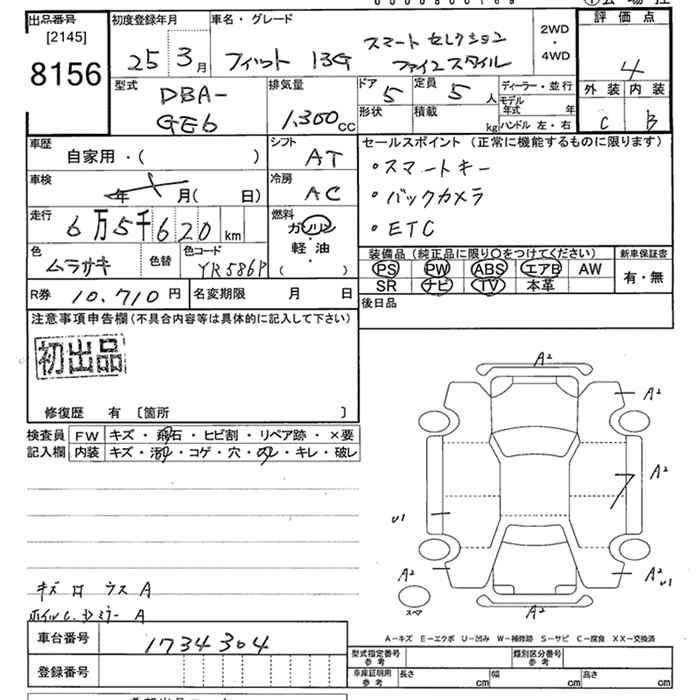 出品番号
[2145]
8156
初度登録年月
25 3月
車名・グレード
フィット 13G スマートセレクション
ファインスタイル
2WD
・
4WD
評価点
4
外装 内装
C B
型式
DBA-
GE6
排気量
1,300cc
ドア 5
定員 5人
形状
積載 kg
ディーラー・並行
モデル年式 年
ハンドル 左・右
車歴
自家用・( )
シフト
AT
車検
年 月( 日)
冷房
AC
走行
6万5千620km
燃料
ガソリン
・
軽油
( )
色
ムラサキ
色替
色コード
YR586P
R券 10,710円
名変期限 月 日
セールスポイント (正常に機能するものに限ります)
・スマートキー
・バックカメラ
・ETC
装備品(純正品に限り○をつけてください)
PS PW ABS エアB AW
SR ナビ TV 本革
新車保証書
有・無
後日品
注意事項申告欄(不具合内容等は具体的に記入して下さい)
初出品
修復歴 有 〔箇所 〕
検査員
記入欄
FW キズ・飛石・ヒビ割・リペア跡・×要
内装 キズ・汚れ・コゲ・穴・スレ・キレ・破レ
A2
A2
A2
U1
A2
A2
U1
A2
スペア
キズ ロ ウス A
ホイルC. A
A-キズ E-エクボ U-凹み W-補修跡 S-サビ C-腐食 XX-交換済
車台番号 1734304
登録番号
型式指定番号
参考
類別区分番号
参考
車庫証明用
参考
長さ cm
幅 cm
高さ cm